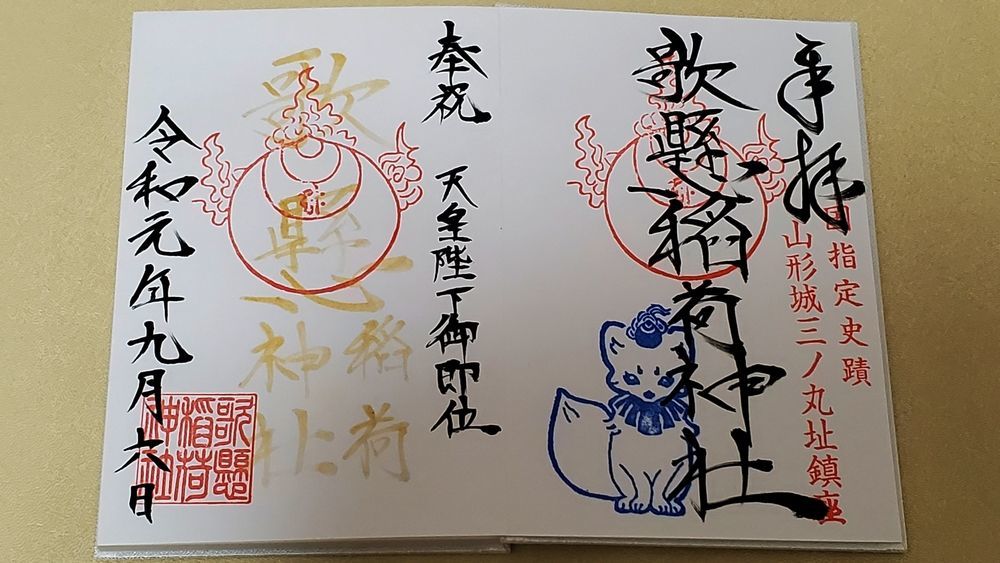 奉拝
国指定史蹟
山形城三ノ丸址鎮座
歌懸稲荷神社
奉祝 天皇陛下御即位
歌懸稲荷
神社
令和元年九月六日
歌懸
稲荷
神社